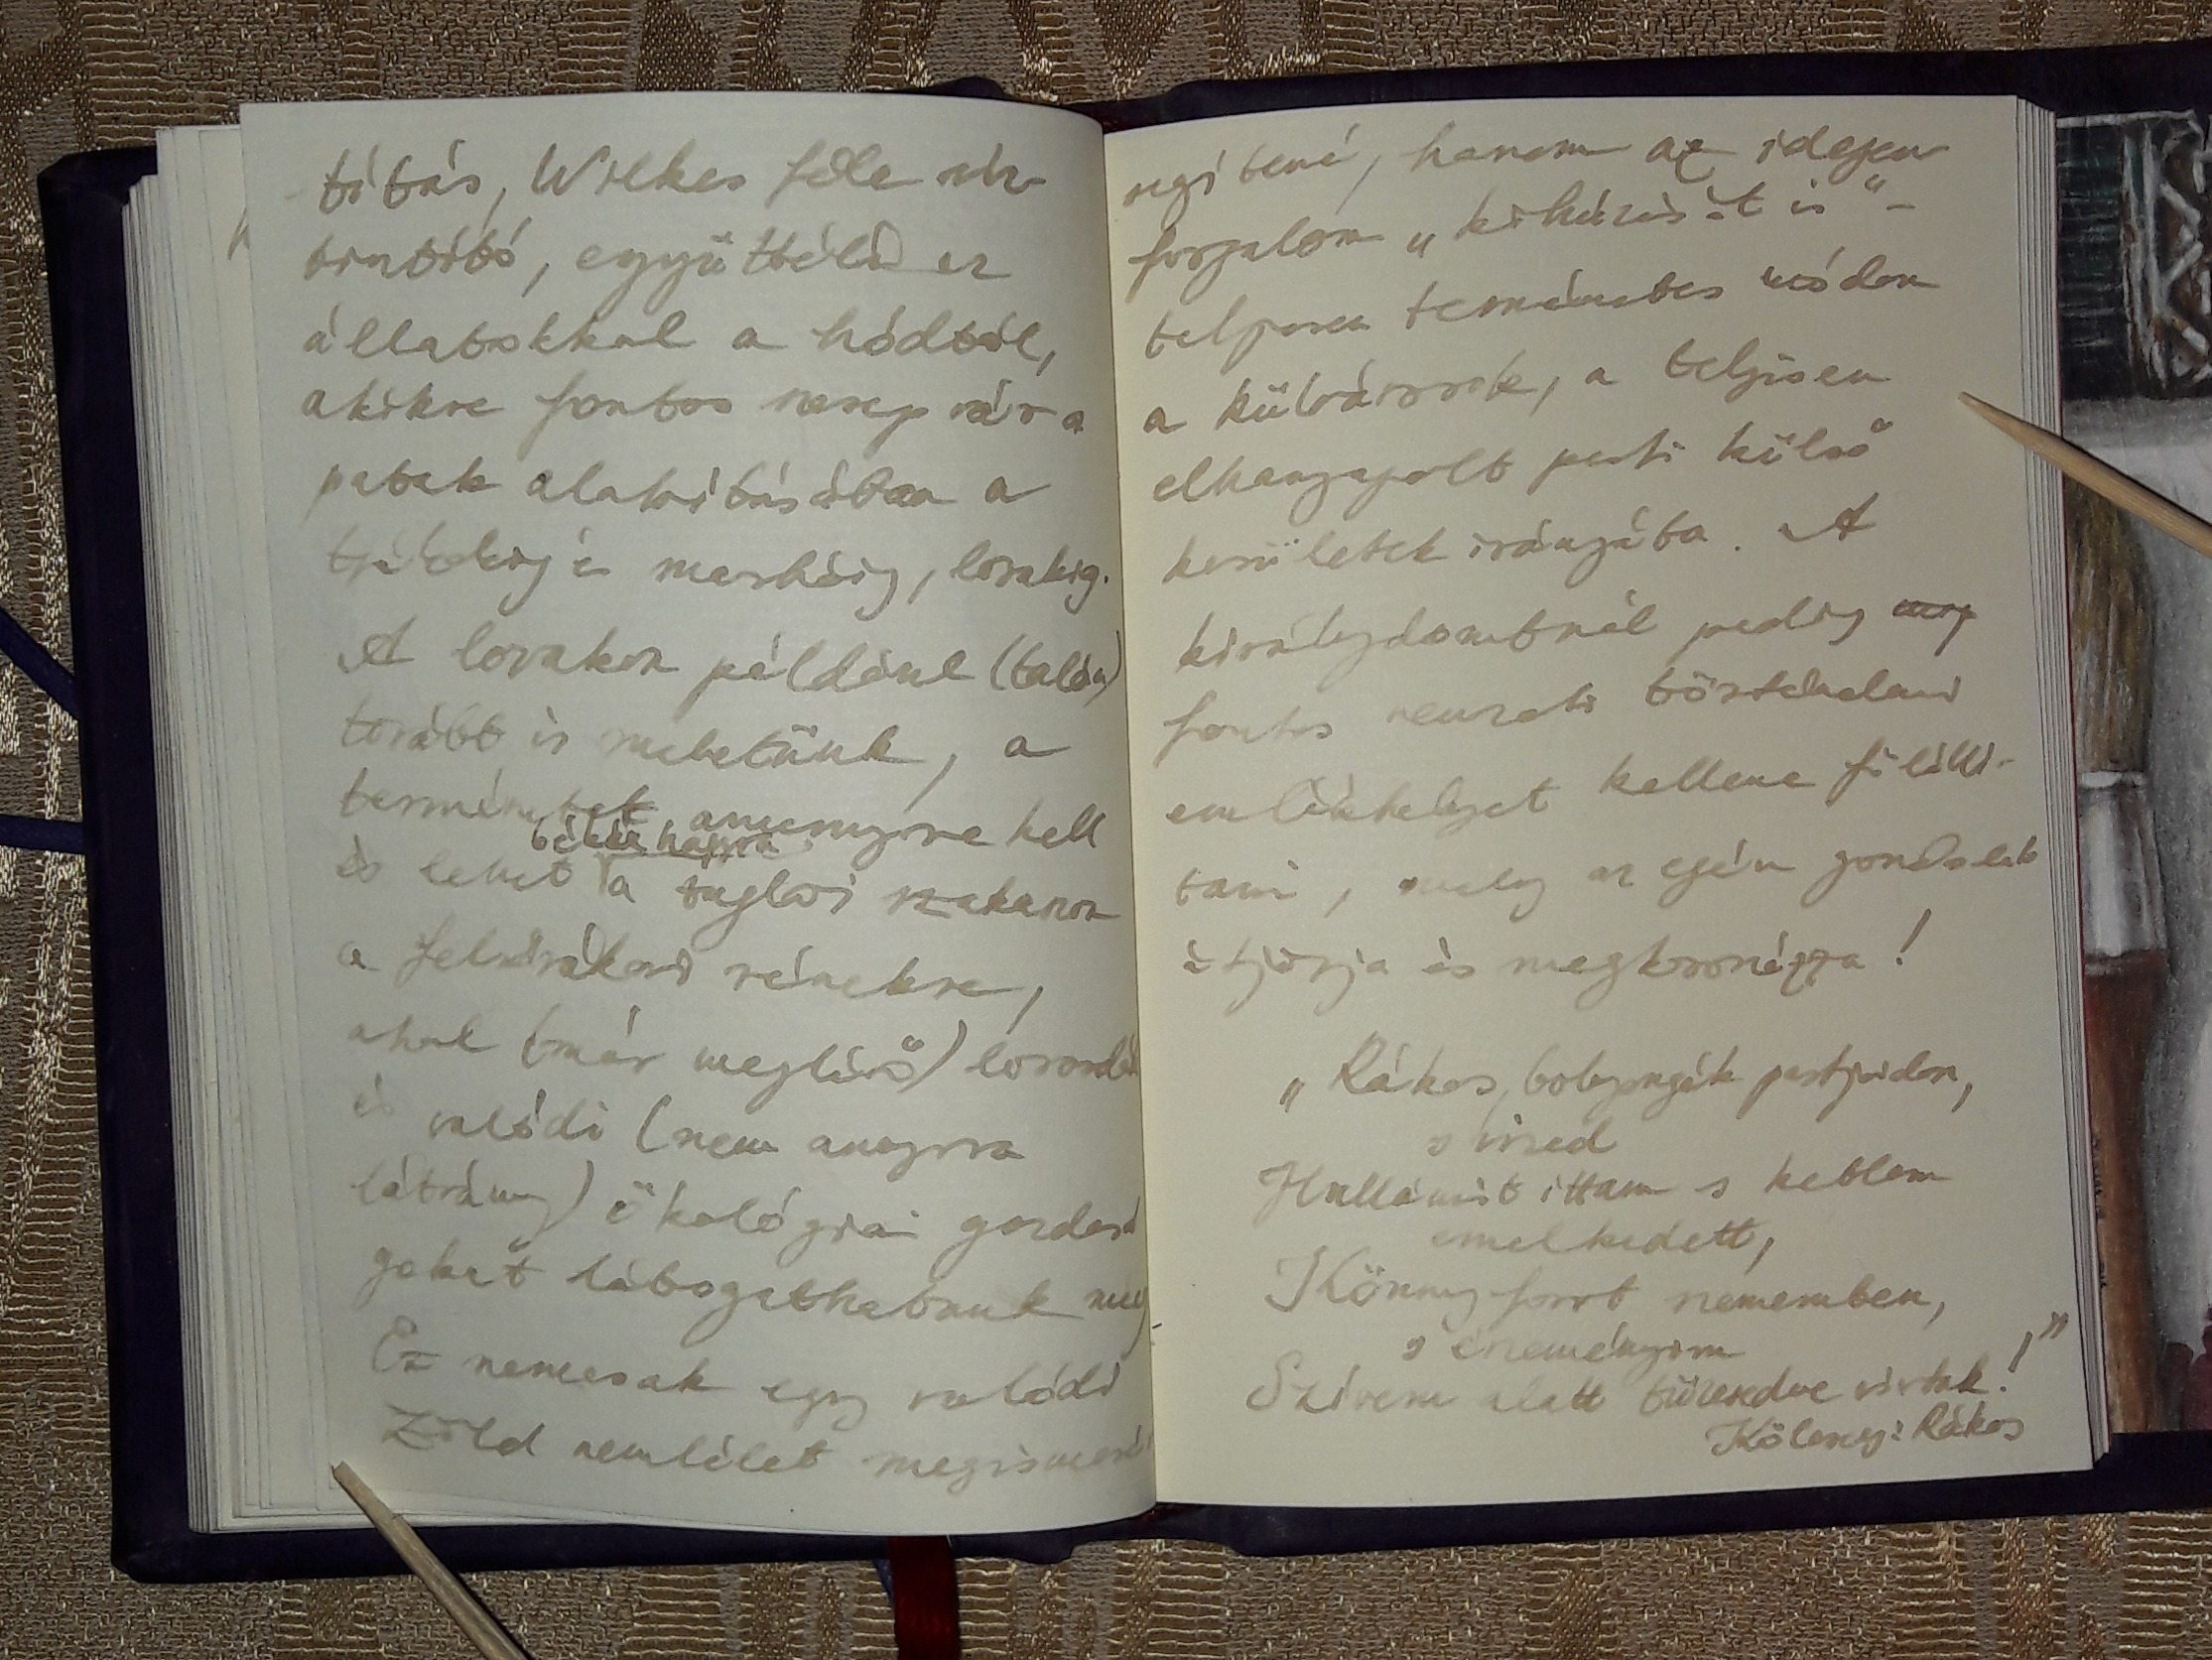 títás, Wilkes féle víz-
tisztító, együttélő az
állatokkal a hódtól,
akikre fontos szerep vár a
patak alakításában a
és marháig, lovakig.
A lovakon például (talán)
tovább is mehetünk, a
természetet annyira kell
békén hagyni
és lehet a zuglói szakaszon
a felsőrákosi rétekre,
ahol (már meglévő) lovardá
és valódi (nem annyira
látvány) ökológiai gazdasá
gokat látogathatunk meg
Ez nemcsak egy valódi
zöld szemlélet megismeré
segítené, hanem az idegen
forgalom „kihúzását is" -
teljesen természetes módon
a külvárosok, a teljesen
elhanyagolt pesti külső
kerületek irányába. A
királydombnál pedig meg
fontos nemzeti történelmi
emlékhelyet kellene fölállí-
tani, mely az egész gondolatot
átjárja és megkoronázza!
„Rákos, bolyongék partjaidon,
s vized
Hullámit ittam s keblem
emelkedett,
Könny forrt szememben,
s érzeményim
Szívem alatt tüzesedve vívtak!"
Kölcsey: Rákos